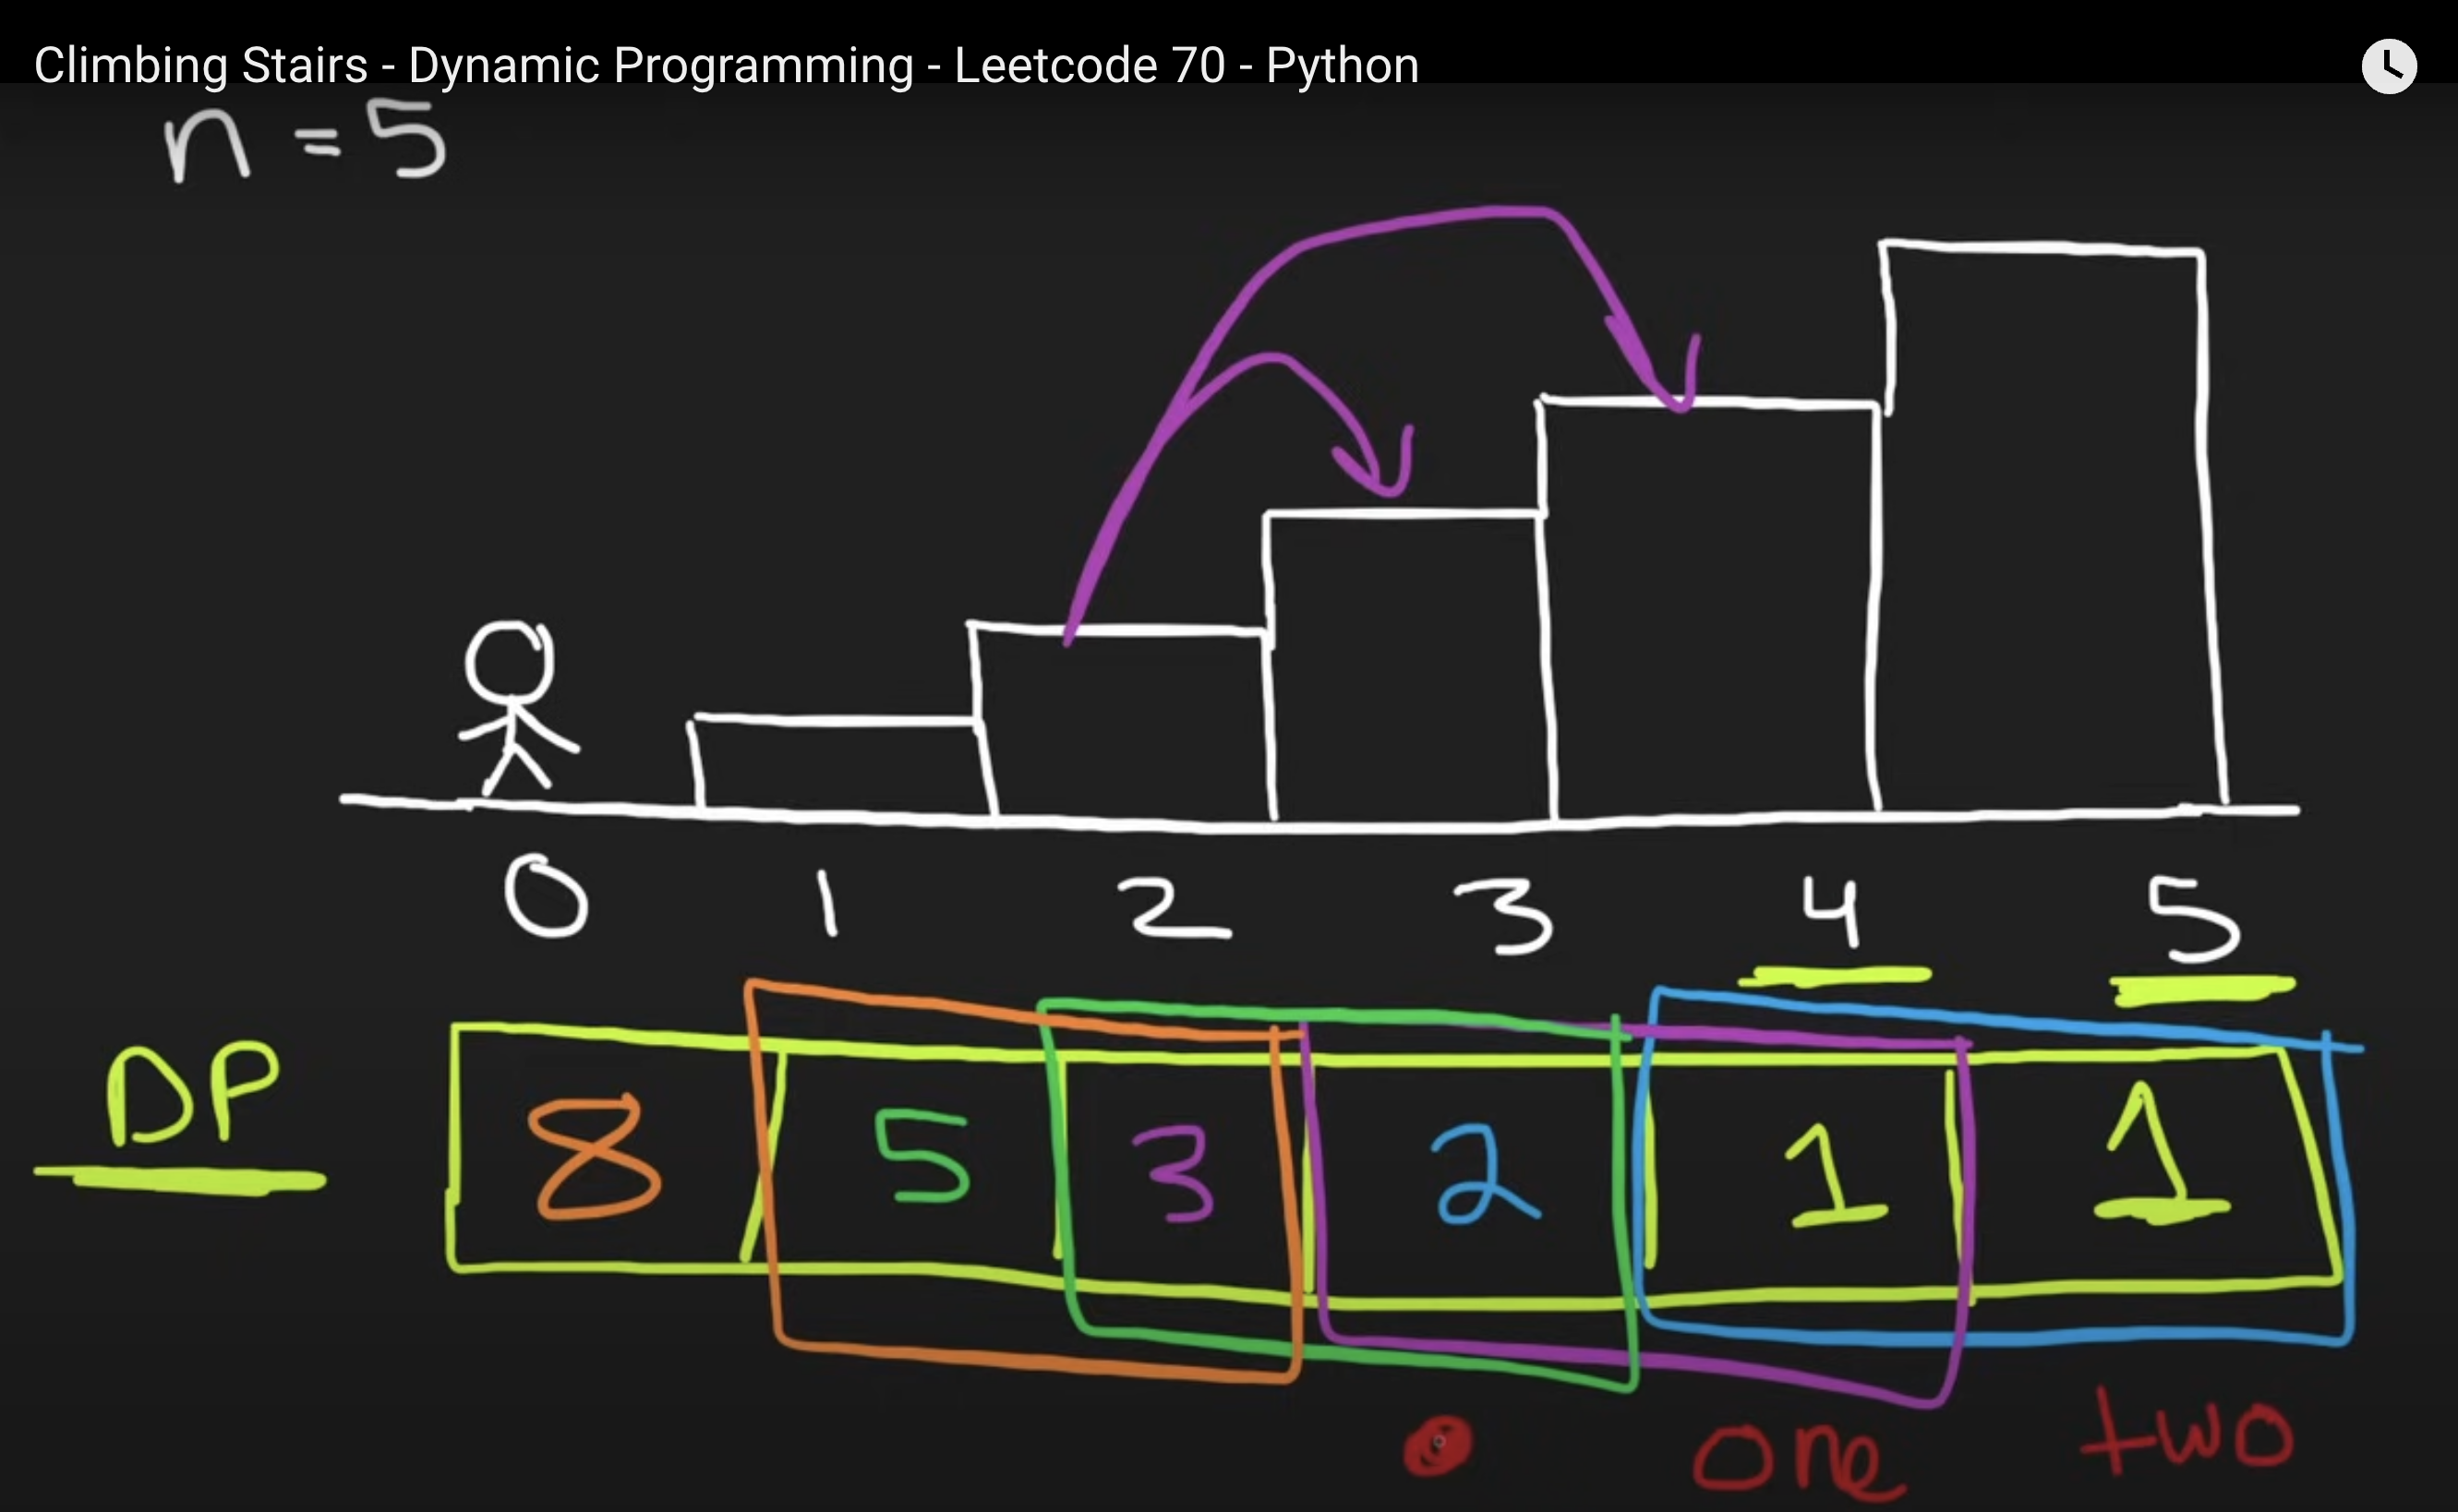 Climbing Stairs - Dynamic Programming - Leetcode 70 - Python
n = 5
0 1 2 3 4 5
DP 8 5 3 2 1 1
one two